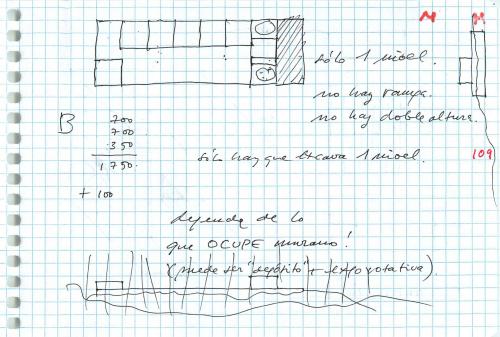 M M
sólo 1 nivel.
no hay rampa.
no hay doble altura.
B
700
700
350
1.750
+ 100
sólo hay que excavar 1 nivel.
109
depende de lo
que OCUPE murano!
(puede ser "depósito" + expo rotativa).